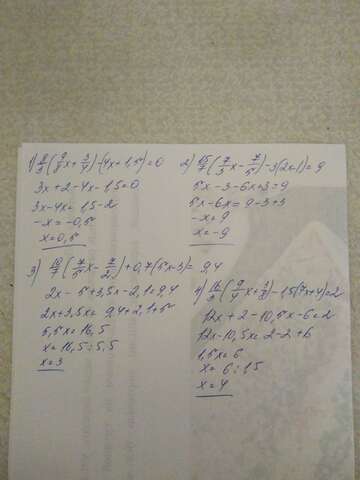 1) 8/3 (9/8 x + 3/4) - (4x - 1,5) = 0
3x + 2 - 4x - 1,5 = 0
3x - 4x = 1,5 - 2
-x = -0,5
x = 0,5
2) 15/7 (7/3 x - 7/5) - 3(2x - 1) = 9
5x - 3 - 6x + 3 = 9
5x - 6x = 9 - 3 + 3
-x = 9
x = -9
3) 10/7 (7/5 x - 7/2) + 0,7 (5x - 3) = 9,4
2x - 5 + 3,5x - 2,1 = 9,4
2x + 3,5x = 9,4 + 2,1 + 5
5,5x = 16,5
x = 16,5 : 5,5
x = 3
4) 16/3 (9/4 x + 3/8) - 1,5 (7x + 4) = 2
12x + 2 - 10,5x - 6 = 2
12x - 10,5x = 2 - 2 + 6
1,5x = 6
x = 6 : 1,5
x = 4